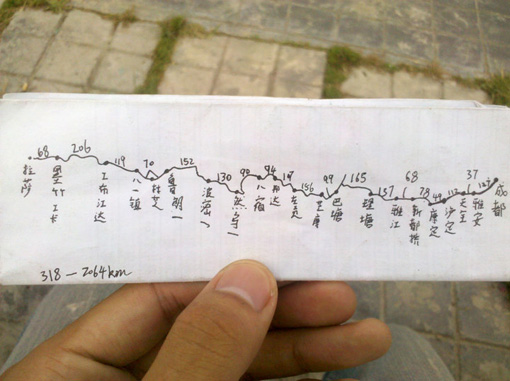 68 206 119 70 152 130 90 94 107 156 99 165 137 68 78 49 112 37 127
拉萨
墨竹工卡
工布江达
八一镇
林芝
鲁朗
波密
然乌
八宿
邦达
左贡
芒康
巴塘
理塘
雅江
新都桥
康定
泸定
天全
雅安
成都
318 - 2064km